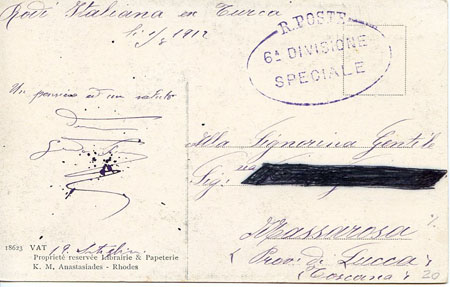 Rodi Italiana ex Turca
li 1/8 1912
R. POSTE
6ª DIVISIONE
SPECIALE
Un pensiero ed un saluto
Alla Signorina Gentile
Sig:
Massarosa
(Prov. di Lucca)
(Toscana)
20
18623 VAT
Proprieté reservée Librairie & Papeterie
K. M. Anastasiades - Rhodes